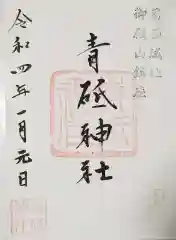 御殿山鎮座
青砥神社
令和四年一月元日